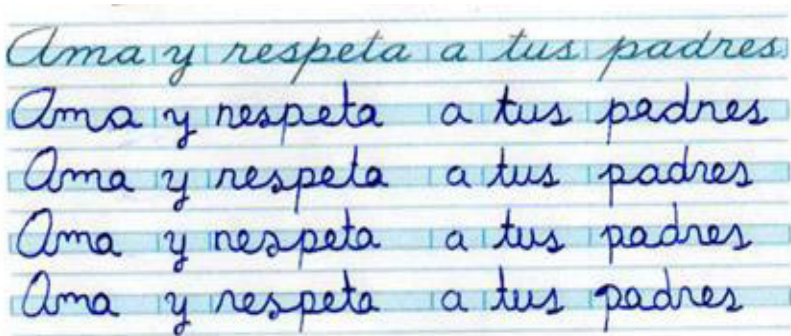 Ama y respeta a tus padres.
Ama y respeta a tus padres
Ama y respeta a tus padres
Ama y respeta a tus padres
Ama y respeta a tus padres